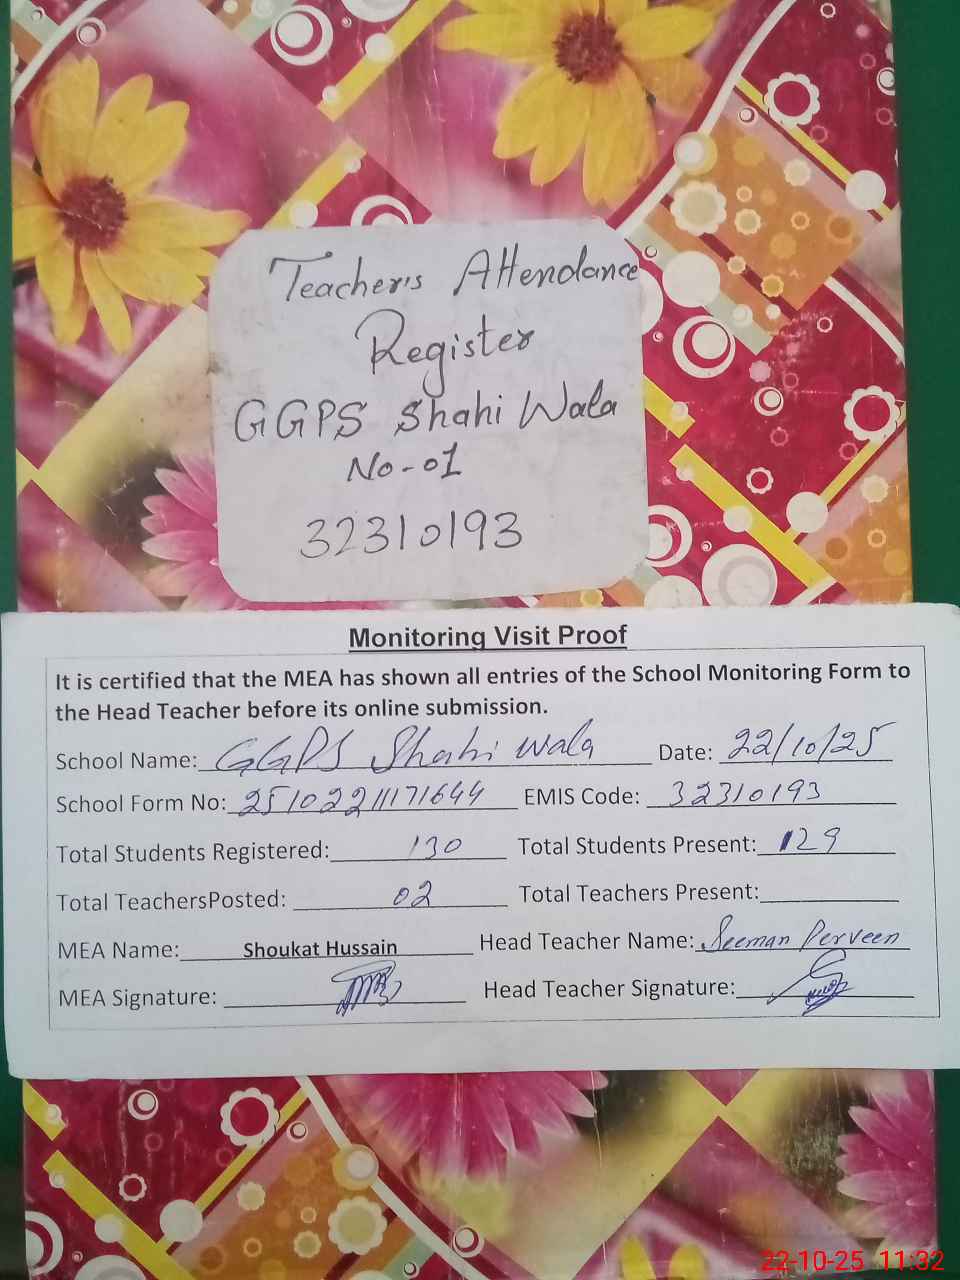 Teacher's Attendance
Register
GGPS Shahi Wala
No-01
32310193
Monitoring Visit Proof
It is certified that the MEA has shown all entries of the School Monitoring Form to
the Head Teacher before its online submission.
School Name: GGPS Shahi wala Date: 22/10/25
School Form No: 25102211171644 EMIS Code: 32310193
Total Students Registered: 130 Total Students Present: 129
Total TeachersPosted: 02 Total Teachers Present:
MEA Name: Shoukat Hussain Head Teacher Name: Seeman Perveen
MEA Signature: Head Teacher Signature:
22-10-25 11:32